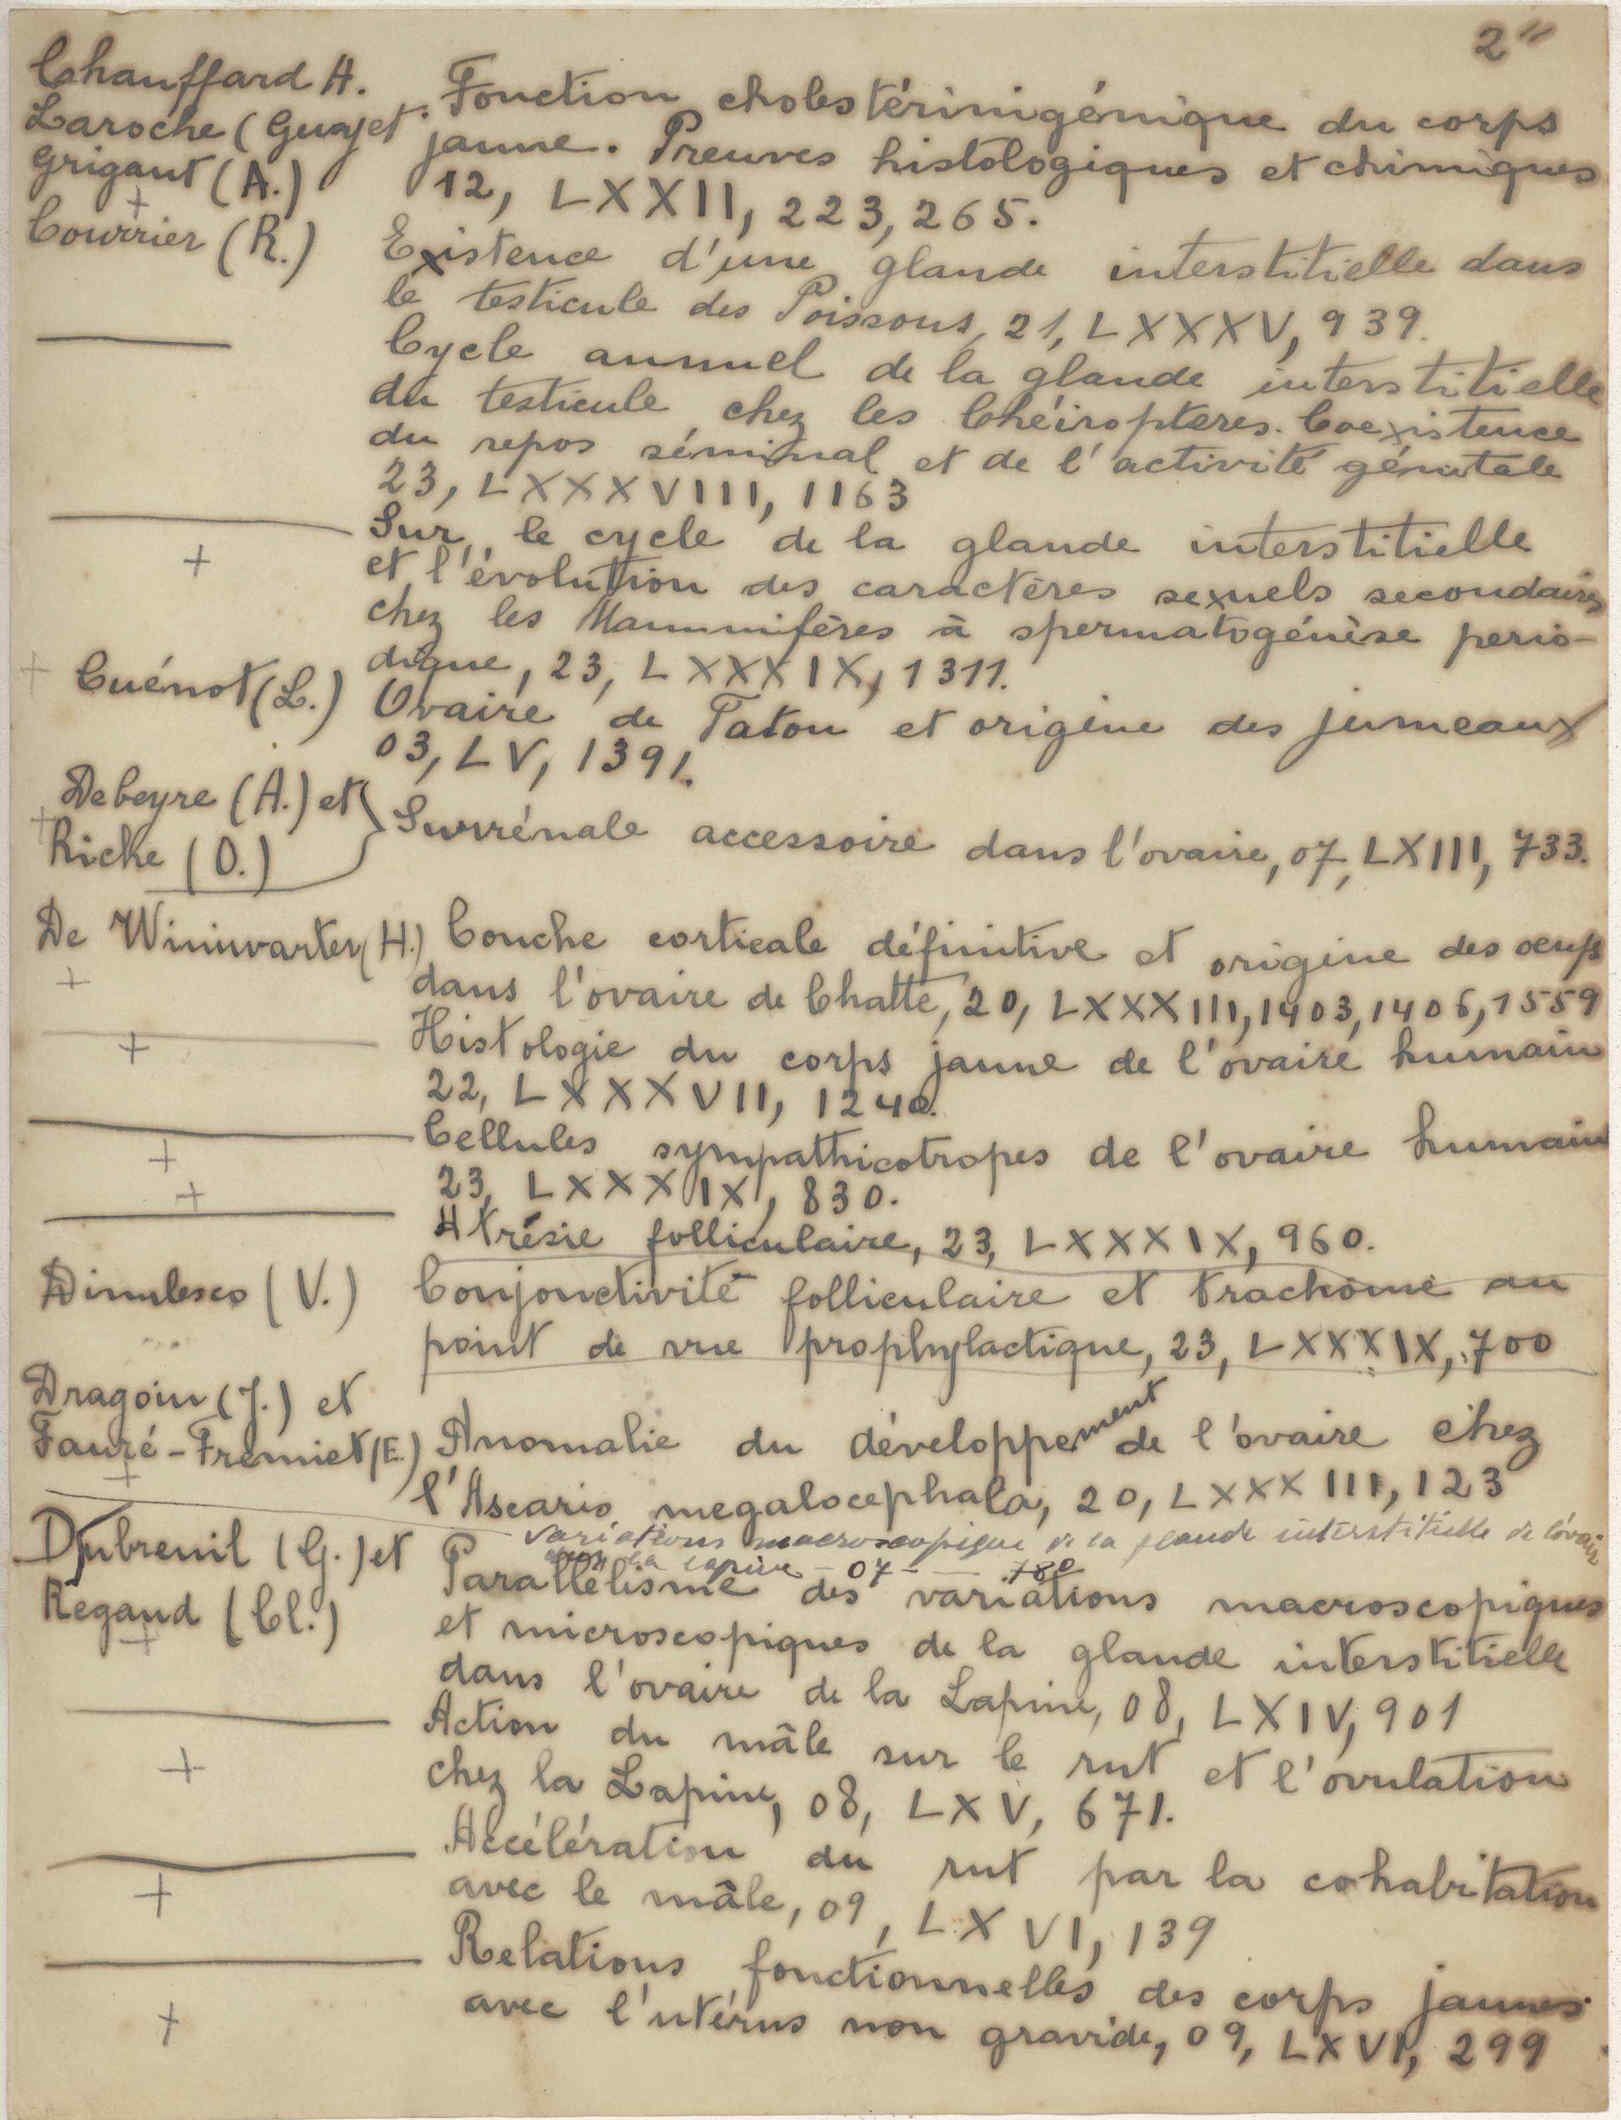 2"
Chauffard A.
Laroche (Guy) et
Grigaut (A.)
+
Fonction cholestérinigénique du corps
jaune. Preuves histologiques et chimiques
12, LXXII, 223, 265.
Courrier (R.)
Existence d'une glande interstitielle dans
le testicule des Poissons, 21, LXXXV, 939.
Cycle annuel de la glande interstitielle
du testicule chez les Chéiroptères. Coexistence
du repos séminal et de l'activité génitale
23, LXXXVIII, 1163
+
Sur le cycle de la glande interstitielle
et l'évolution des caractères sexuels secondaires
chez les Mammifères à spermatogénèse perio-
dique, 23, LXXXIX, 1311.
+ Cuénot (L.)
Ovaire de Tatou et origine des jumeaux
03, LV, 1391.
Debeyre (A.) et
+ Riche (O.)
Surrénale accessoire dans l'ovaire, 07, LXIII, 733.
De Winiwarter (H.)
+
Couche corticale définitive et origine des oeufs
dans l'ovaire de Chatte, 20, LXXXIII, 1403, 1406, 1559
+
Histologie du corps jaune de l'ovaire humain
22, LXXXVII, 1240.
+
Cellules sympathicotropes de l'ovaire humain
23, LXXXIX, 830.
+
Atrésie folliculaire, 23, LXXXIX, 960.
Dinulesco (V.)
Conjonctivite folliculaire et trachome au
point de vue prophylactique, 23, LXXXIX, 700
Dragoiu (J.) et
Fauré-Fremiet (E.)
+
Anomalie du développement de l'ovaire chez
l'Ascaris megalocephala, 20, LXXXIII, 123
Variations macroscopique de la glande interstitielle de l'ovaire
la lapine - 07 - 780
Dubreuil (G.) et
Regaud (Cl.)
+
Parallélisme des variations macroscopiques
et microscopiques de la glande interstitielle
dans l'ovaire de la Lapine, 08, LXIV, 901
+
Action du mâle sur le rut et l'ovulation
chez la Lapine, 08, LXV, 671.
+
Accélération du rut par la cohabitation
avec le mâle, 09, LXVI, 139
+
Relations fonctionnelles des corps jaunes
avec l'utérus non gravide, 09, LXVI, 299